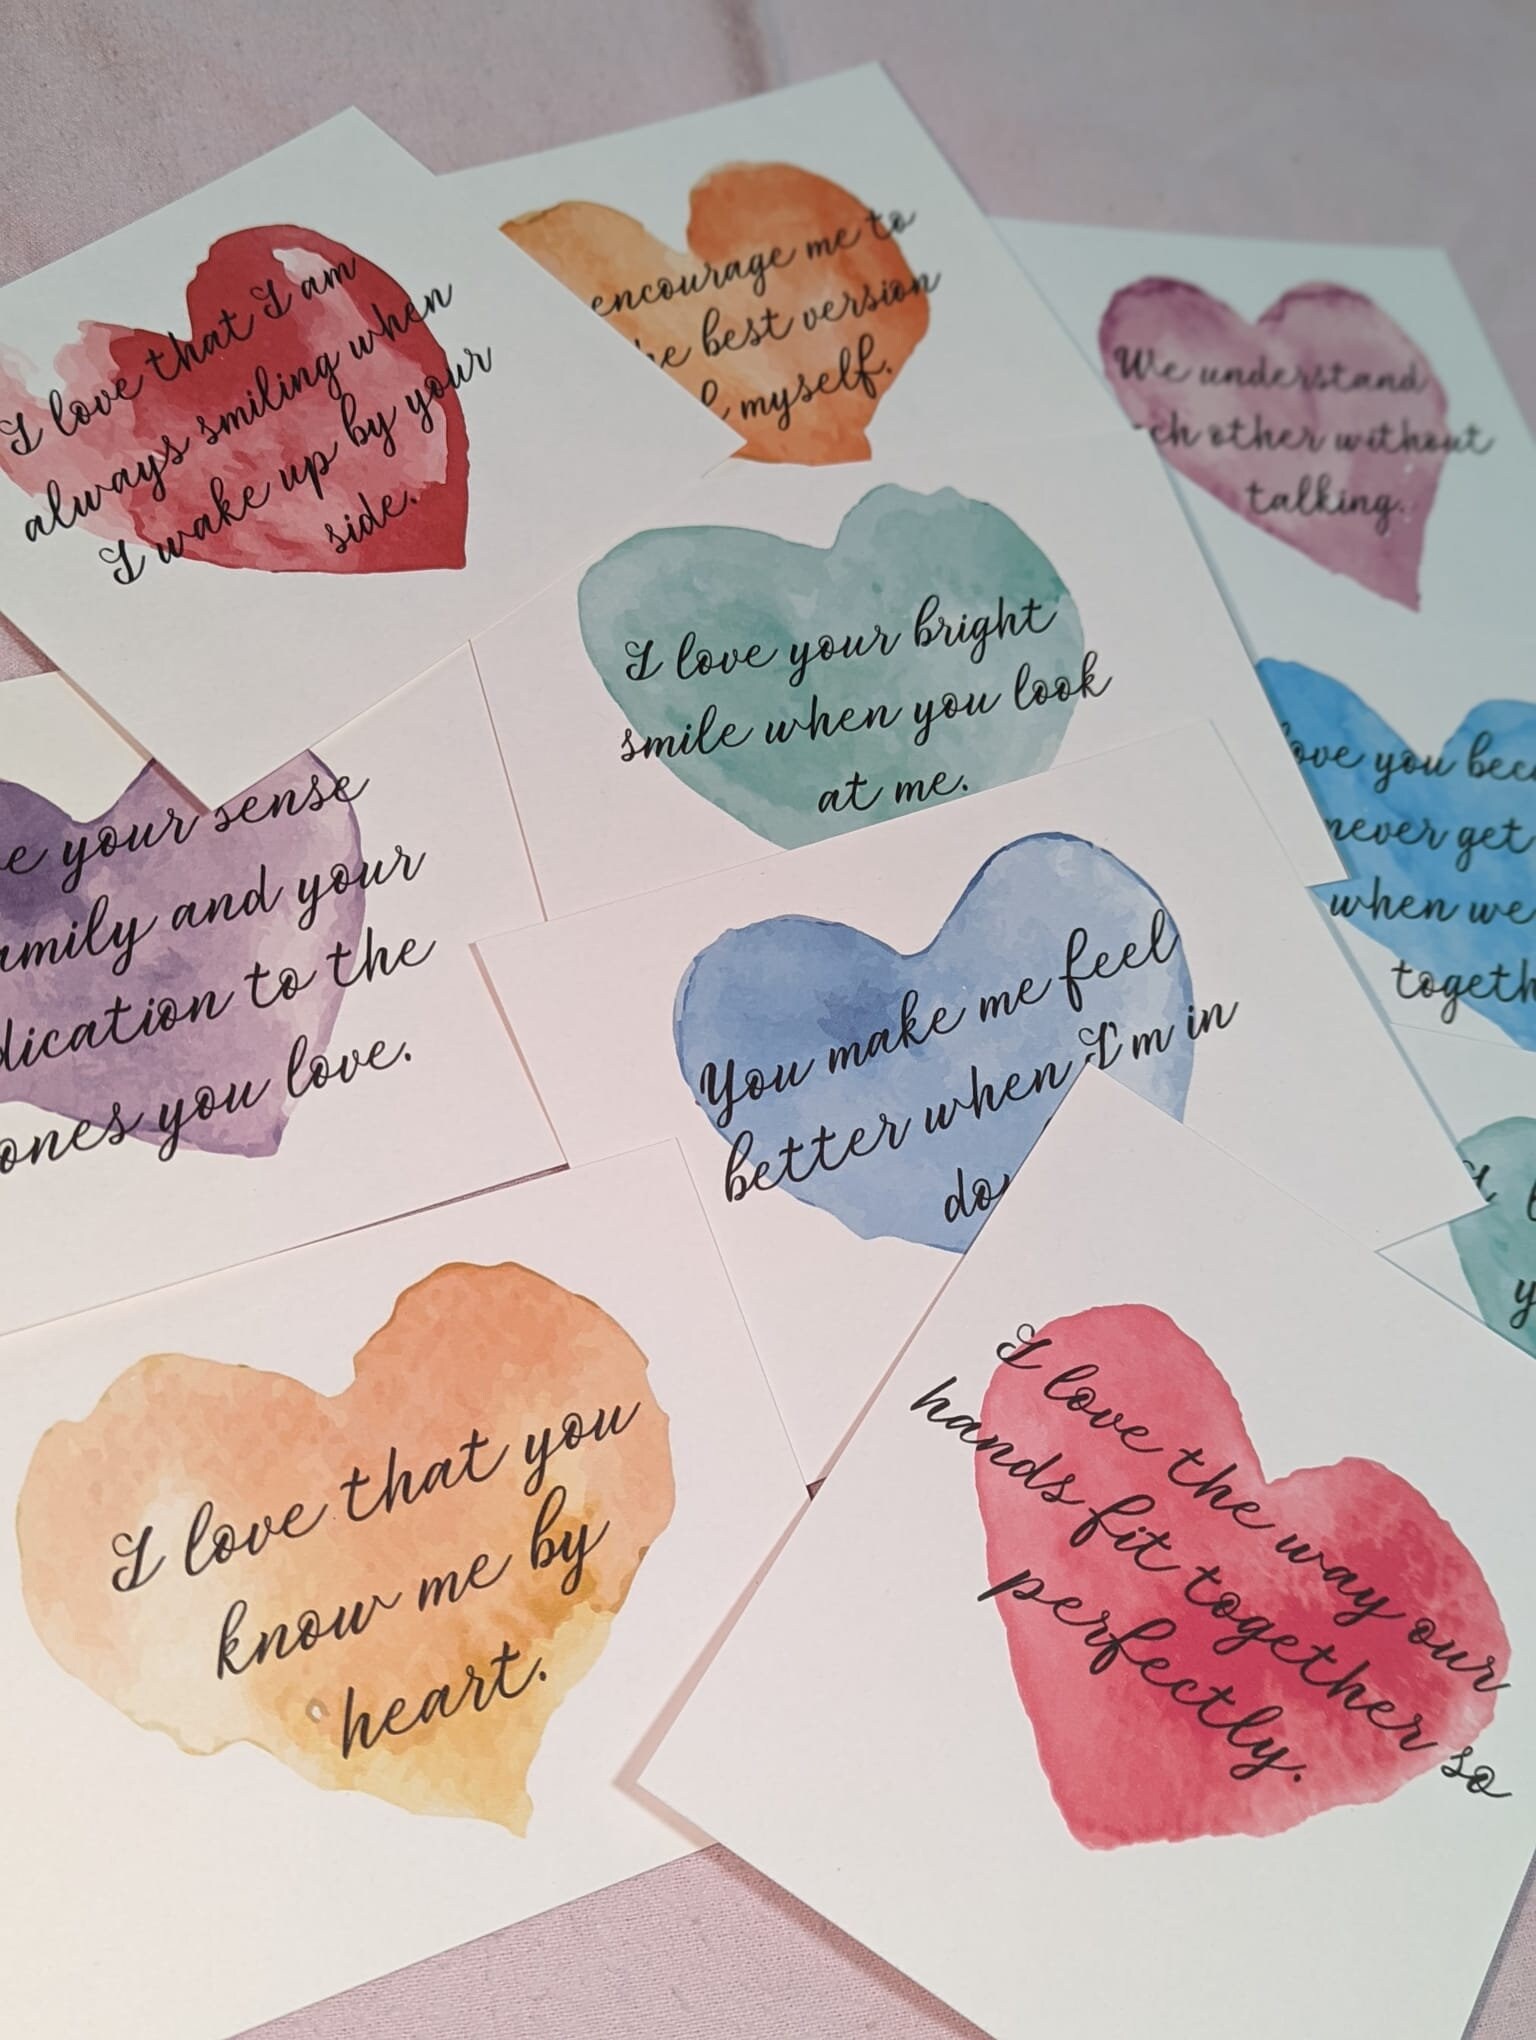 I love that I am
always smiling when
I wake up by your
side.
encourage me to
best version
myself.
We understand
other without
talking.
I love your bright
smile when you look
at me.
love you
never get
when we
your sense
and your
to the
ones you love.
You make me feel
better when I'm in
I love that you
know me by
heart.
I love the way our
hands fit together so
perfectly.